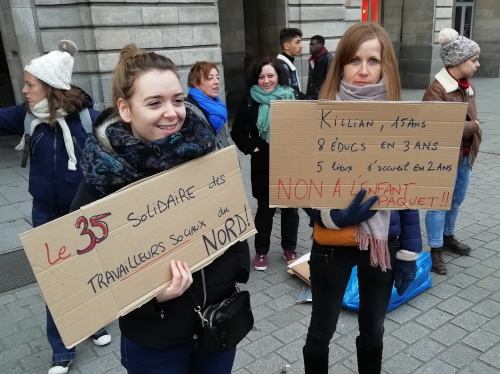 Le 35 SOLIDAIRE des
TRAVAILLEURS SOCIAUX du
NORD!
KILLIAN, 15 ANS
8 ÉDUCS EN 3 ANS
5 lieux d'accueil en 2 ANS
NON À L'ENFANT
PAQUET !!